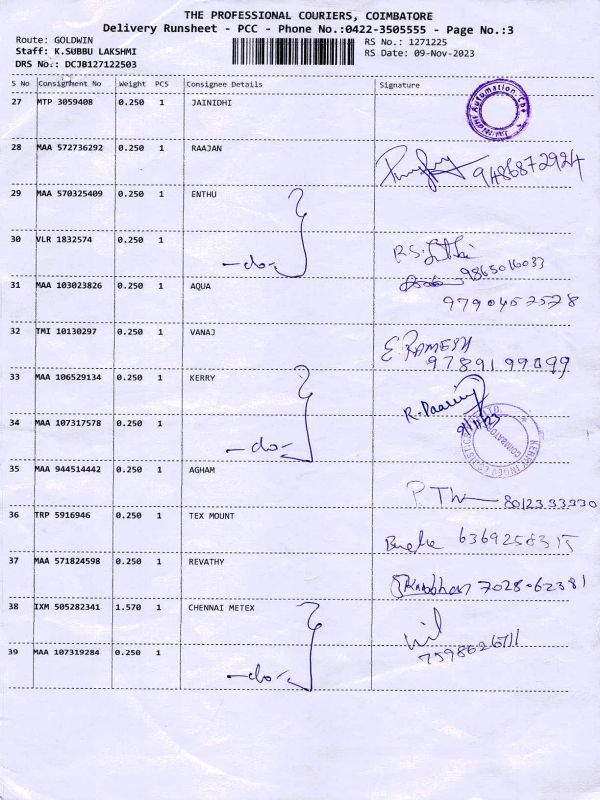 THE PROFESSIONAL COURIERS, COIMBATORE
Delivery Runsheet - PCC - Phone No.:0422-3505555 - Page No.:3
Route: GOLDWIN
RS No.: 1271225
Staff: K.SUBBU LAKSHMI
RS Date: 09-Nov-2023
DRS No.: DCJB127122503
S No Consignment No Weight PCS Consignee Details Signature
27 MTP 3059408 0.250 1 JAINIDHI
28 MAA 572736292 0.250 1 RAAJAN
9486872924
29 MAA 570325409 0.250 1 ENTHU
30 VLR 1832574 0.250 1
-do-
9865016033
31 MAA 103023826 0.250 1 AQUA
32 TMI 10130297 0.250 1 VANAJ
E. RAMESH
33 MAA 106529134 0.250 1 KERRY
34 MAA 107317578 0.250 1
9/11/23
-do-
35 MAA 944514442 0.250 1 AGHAM
36 TRP 5916946 0.250 1 TEX MOUNT
6369258315
37 MAA 571824598 0.250 1 REVATHY
7028062381
38 IXM 505282341 1.570 1 CHENNAI METEX
39 MAA 107319284 0.250 1
-do-